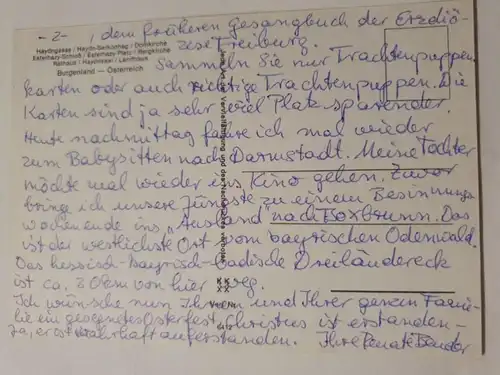 - 2 - , dem früheren Gesangbuch der Erzdiö-
zese Freiburg.
Haydngasse / Haydn-Sarkophag / Domkirche
Esterházy-Schloß / Esterházy-Platz / Bergkirche
Rathaus / Haydnkisel / Landhaus
Burgenland — Österreich
Sammeln Sie nur Trachtenpuppen-
karten oder auch richtige Trachtenpuppen. Die
Karten sind ja sehr viel Platz sparender.
Heute nachmittag fahre ich mal wieder
zum Babysitten nach Darmstadt. Meine Tochter
möchte mal wieder ins Kino gehen. Zuvor
bring ich unsere Jüngste zu einem Besinnungs-
wochenende ins „Ausland" nach Boxbrunn. Das
ist der westlichste Ort vom bayrischen Odenwald.
Das hessisch-bayrisch-badische Dreiländereck
ist ca. 20 km von hier weg.
Ich wünsche nun Ihnen und Ihrer ganzen Fami-
lie ein gesegnetes Osterfest. Christus ist erstanden -
ja, er ist wahrhaft auferstanden. Ihre Renate